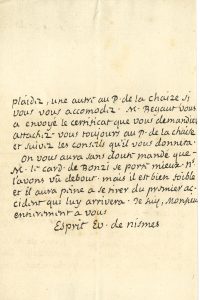 plaidiz, une autre au P. de la chaize si
vous vous accomodiz. M. Begaut vous
a envoyé le certificat que vous demandiez
attachiz vous toujours au P. de la chaise
et suiviz les conseils qu'il vous donnera.
On vous aura sans doute mandé que
M. le card. de Bonzi se porte mieux. n
l'avons vû debout. mais il est bien foible
et il aura peine a se tirer du premier ac-
cident qui luy arrivera. Je suis, Monsieur
entierement a vous
Esprit Ev. de nismes